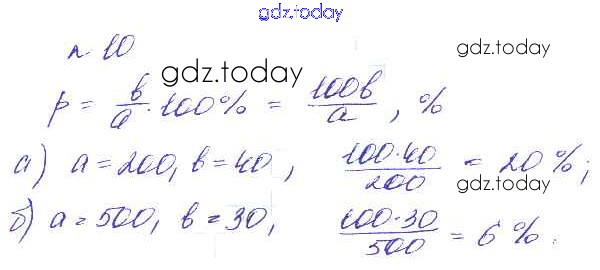 gdz.today
n 10
gdz.today
gdz.today
p = b/a · 100% = 100b/a , %
а) a = 200, b = 40 , 100·40/200 = 20 %;
gdz.today
б) a = 500, b = 30, 100·30/500 = 6 %.